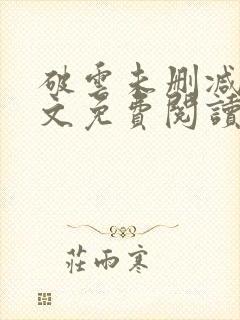 破雲未刪减
文免費閱讀
莊雨寒